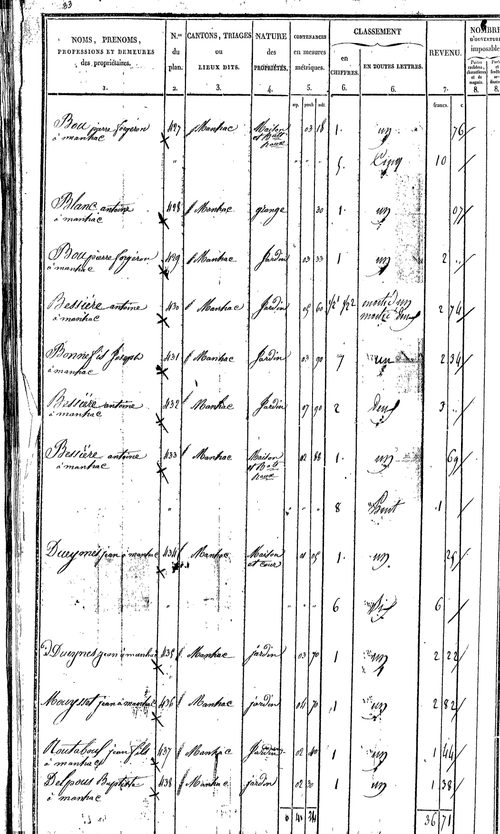 83
NOMS, PRENOMS, PROFESSIONS ET DEMEURES des propriétaires. N.os du plan. CANTONS, TRIAGES ou LIEUX DITS. NATURE des PROPRIÉTÉS. CONTENANCES en mesures métriques. CLASSEMENT en CHIFFRES. EN TOUTES LETTRES. REVENU. NOMBRE D'OUVERTURES imposables
1. 2. 3. 4. 5. 6. 6. 7. 8. 8.
francs. c.
Bou pierre forgeron à manhac 427 Manhac Maison et Batt 03 18 1. un 76
5. Cinq 10
Blanc antoine à manhac 428 Manhac grange 30 1. un 07
Bou pierre forgeron à manhac 429 Manhac Jardin 03 33 1 un 2 ..
Bessière antoine à manhac 430 Manhac Jardin 05 60 1/2 1 1/2 2 moitié un moitié deux 2 74
Bonnefis Joseph à manhac 431 Manhac Jardin 03 90 1 un 2 34
Bessière antoine à manhac 432 Manhac Jardin 07 90 2 deux 3 ..
Bessière antoine à manhac 433 Manhac Maison et Batt 02 88 1. un 69
8 huit 1
jean à manhac 434 Manhac Maison et cour 01 05 1. un 25
6 Six 6
jean à manhac 435 Manhac jardin 03 70 1 un 2 22
Mouysset jean à manhac 436 Manhac jardin 04 70 1 un 2 82
Routaboul jean fils à manhac 437 Manhac Jardin 02 40 1 un 1 44
Delpous Baptiste à manhac 438 Manhac jardin 02 30 1 un 1 38
0 41 34 36 71